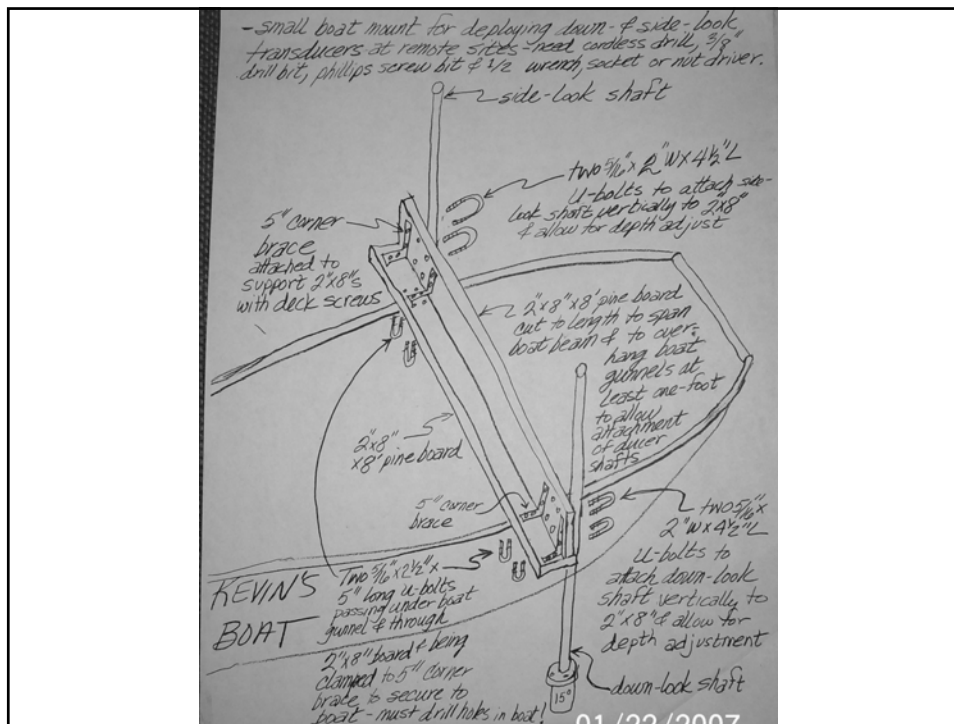 -small boat mount for deploying down- & side-look
transducers at remote sites-need cordless drill, 3/8"
drill bit, phillips screw bit & 1/2 wrench, socket or nut driver.
side-look shaft
two 5/16" x 2"W x 4½"L
U-bolts to attach side-
look shaft vertically to 2"x8"
& allow for depth adjust
5" corner
brace
attached to
support 2"x8"s
with deck screws
2"x8"x8' pine board
cut to length to span
boat beam & to over-
hang boat
gunnels at
least one-foot
to allow
attachment
of ducer
shafts
2"x8"
x8' pine board
5" corner
brace
two 5/16" x
2"W x 4½"L
U-bolts to
attach down-look
shaft vertically to
2"x8" & allow for
depth adjustment
KEVIN'S
BOAT
Two 5/16" x 2½" x
5" long U-bolts
passing under boat
gunnel & through
2"x8" board & being
clamped to 5" corner
brace to secure to
boat - must drill holes in boat!
15°
down-look shaft
01/22/2007